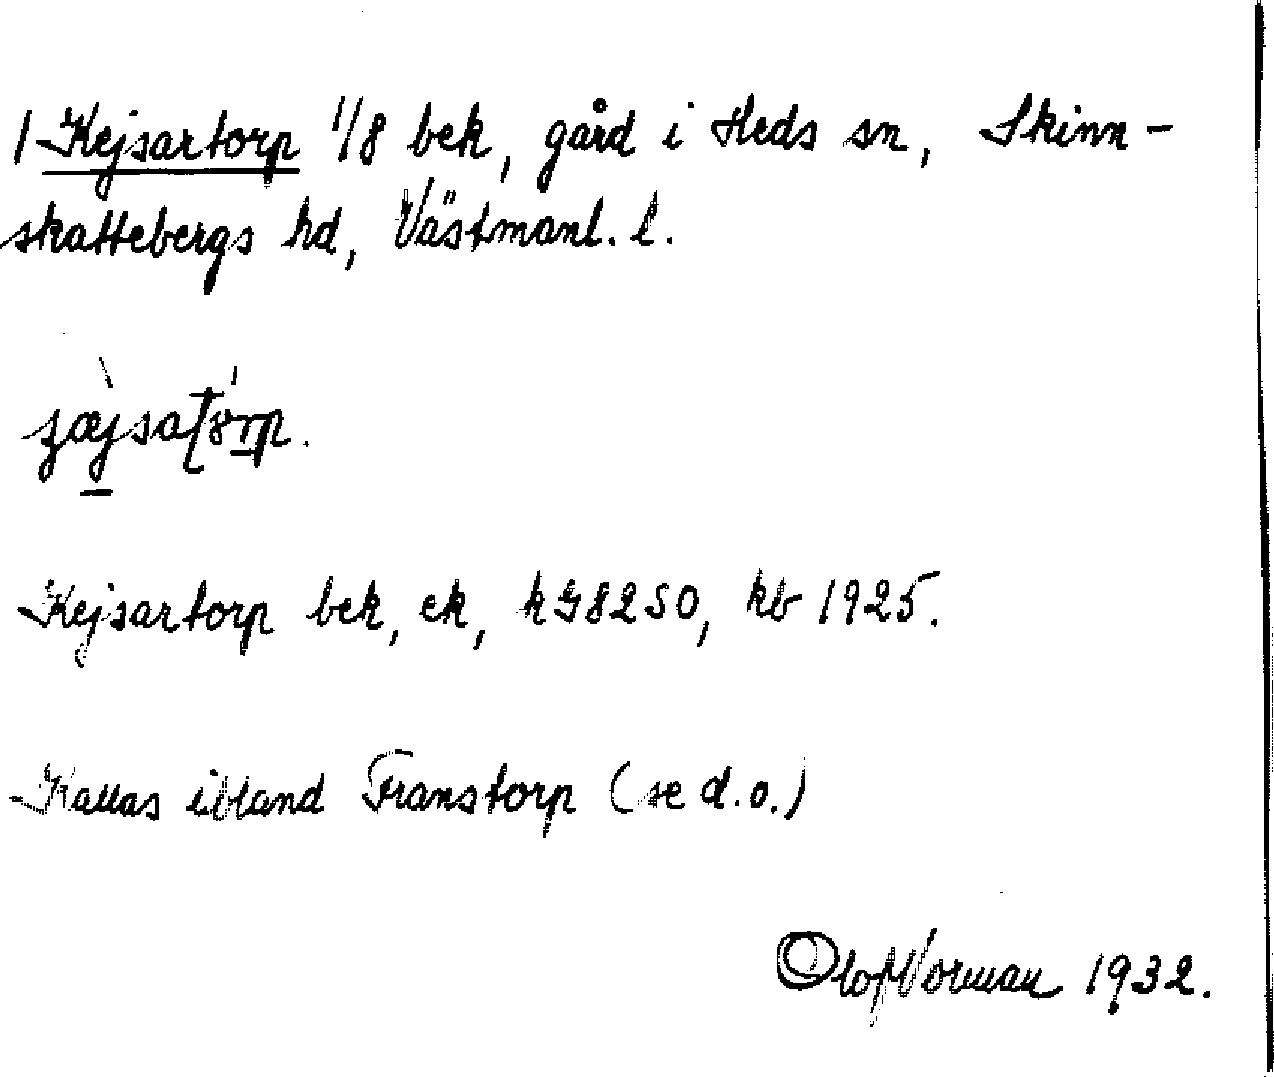 / Kejsartorp 1/8 bek, gård i Heds sn, Skinn-
skattebergs hd, Västmanl. l.
Kejsartorp bek, ek, kG 8250, kb 1925.
Kallas ibland Franstorp (se d.o.)
Olof Norman 1932.